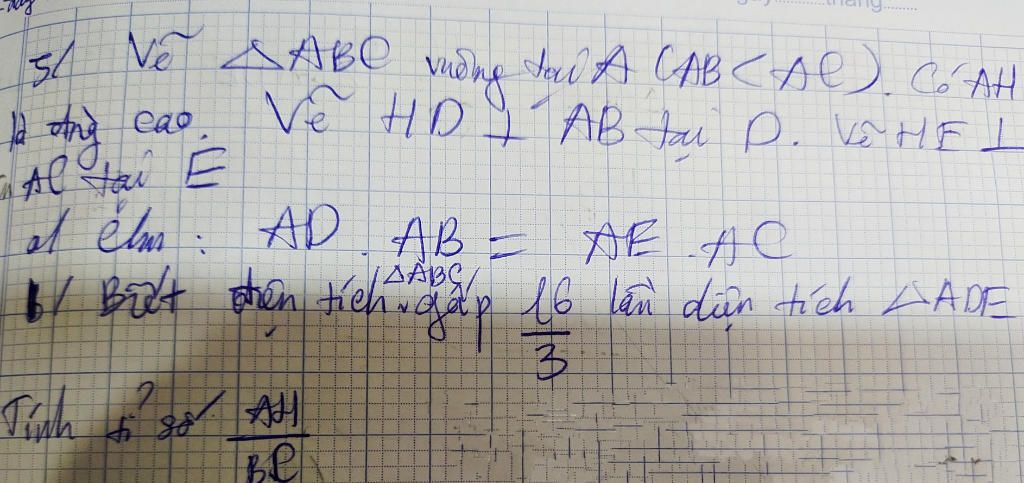 5/ Vẽ △ABC vuông tại A (AB < AC). Có AH
là đng cao. Vẽ HD ⊥ AB tại D. Vẽ HE ⊥
AC tại E
a/ Chm: AD . AB = AE . AC
b/ Biết diện tích △ABC gấp 16/3 lần diện tích △ADE
Tính tỉ số AH/BC